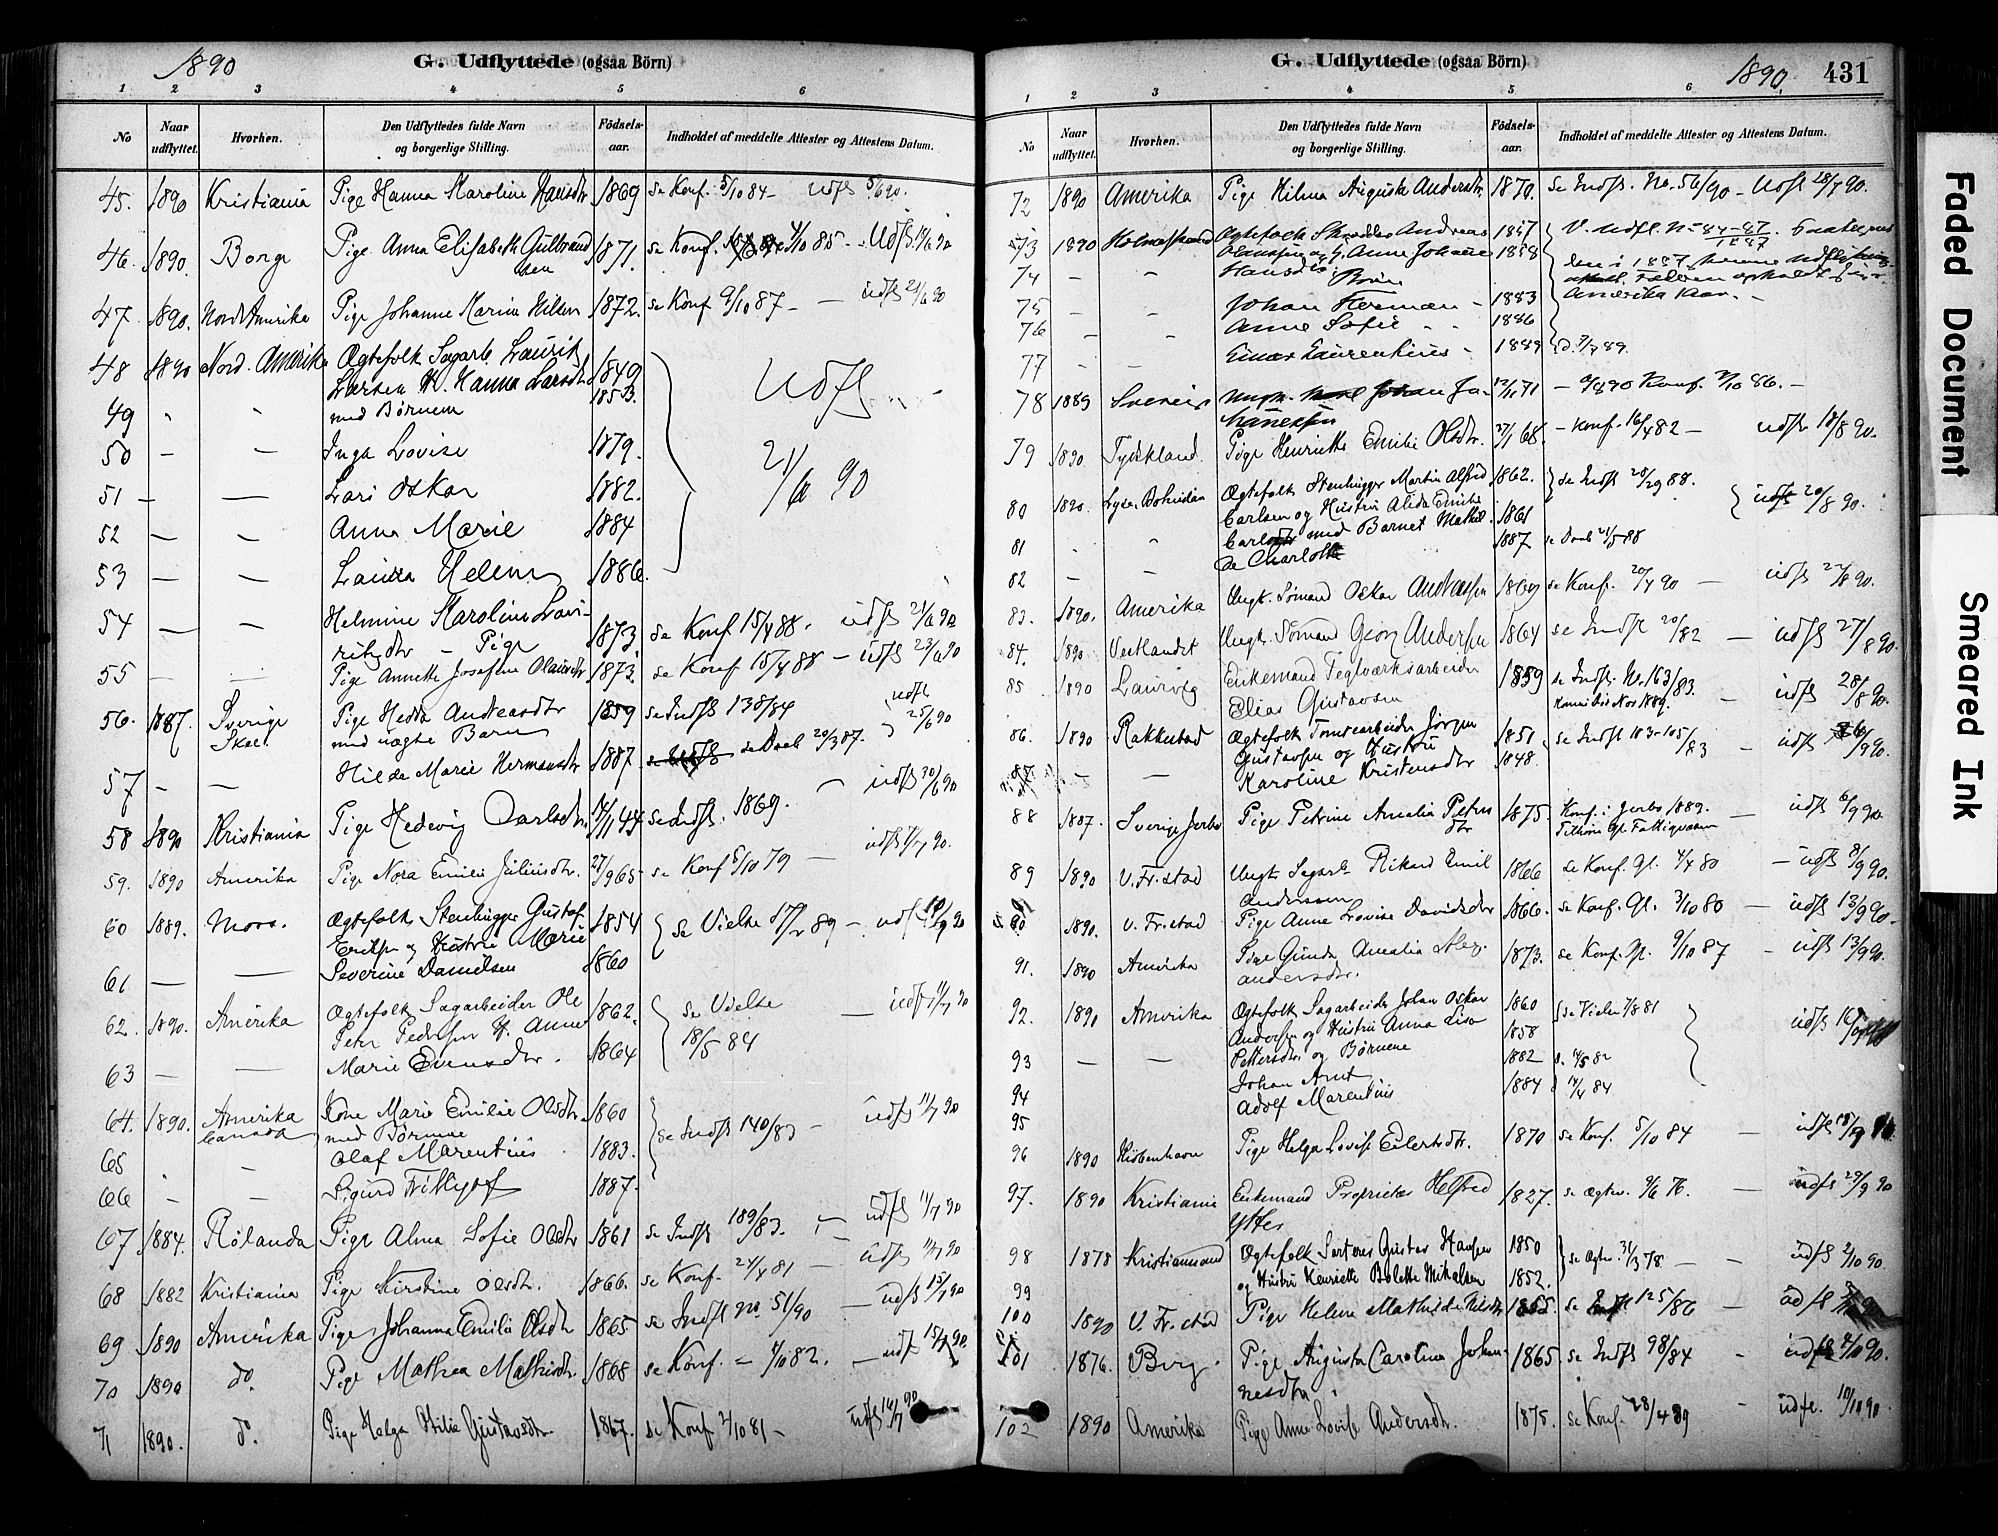 1890
G. Udflyttede (ogsaa Börn)
1 2 3 4 5 6
No Naar udflyttet. Hvorhen. Den Udflyttedes fulde Navn og borgerlige Stilling. Födsels-aar. Indholdet af meddelte Attester og Attestens Datum.
45. 1890 Kristiania Pige Hanna Karoline Hansdtr 1869 se Konf. 5/10 84 - Udfl 5/6 90.
46. 1890. Borge Pige Anna Elisabeth Gulbrand 1871. se Konf. 4/10 85. Udfl.
sen
47. 1890. Nord Amerika Pige Johanne Marie Nilsen 1872. se Konf 9/10 87 - udfl 21/6 90
48 1890 Nord. Amerika Ægtefolk Sagarb. Laurits 1849
49 Larsen H. Hanna Larsdtr 1853.
med Børnem
Udfl
21/6 90
50 - - Inga Lovise 1879.
51 - - Lars Oskar 1882.
52 - - Anna Marie 1884
53 - - Laura Helene 1886.
54 - - Helmine Karoline Lau-
ritzdtr - Pige 1873 se Konf 15/4 88. udfl 21/6 90
55 - - Pige Annette Josefine Olausdtr 1873. se Konf 15/4 88 - udfl 23/6 90
56. 1887. Sverige Pige Hedda Andreasdtr 1859 se Indfl 138/84 udfl 25/6 90
Skee. med uægte Barn
57 - - Hilda Marie Hermansdtr 1887. se Daab 20/3 87.
58 1890 Kristiania Pige Hedevig Carlsdtr 44 se Indfl. 1869. - udfl 30/6 90
59. 1890 Amerika Pige Nora Emilie Juliusdtr. 27/9 65 se Konf 5/10 79 - udfl 1/7 90.
60 1889. Moss. Ægtefolk Stenhugger Gustaf 1854 se Vielse 17/2 89 - udfl
Eriksen og Hustru Marie
61 - - Severine Danielsen 1860
62. 1890. Amerika Ægtefolk Sagarbeider Ole 1862. se Vielse udfl 11/7 90
Peter Pedersen H. Anne 18/5 84
63 - - Marie Evensdtr. 1864
64. 1890. Amerika Kone Marie Emilie Olsdtr. 1860 se Indfl 140/83 - udfl 11/7 90
Canada med Børnene
65 - Olaf Marentius 1883.
66 - - Sigurd Frithjof 1887.
67 1884. Rølanda Pige Alma Sofie Olsdtr 1861 se Indfl 189/83. - udfl 11/7 90
68 1882 Kristiania Pige Kirstine Olsdtr. 1866. se Konf. 24/4 81 - udfl 11/7 90
69 1890 Amerika Pige Johanna Emilie Olsdtr 1865 se Indfl No. 51/90 - udfl 15/7 90
70 1890 do. Pige Mathea Mathisdtr. 1868 se Konf. - 1/10 82. - udf 15/7 90.
71 1890. do. Pige Helga Otilie Gustavsdtr. 1867. se Konf 2/10 81 - udfl 16/7 90
G. Udflyttede (ogsaa Börn)
1890. 431
1 2 3 4 5 6
No Naar udflyttet. Hvorhen. Den Udflyttedes fulde Navn og borgerlige Stilling. Födsels-aar. Indholdet af meddelte Attester og Attestens Datum.
72 1890 Amerika Pige Hilma Augusta Andersdtr. 1870. se Indfl. No. 56/90 - Udfl 28/7 90.
73 1890 Holmestrand Ægtefolk Skrædder Andreas 1857 V. Udfl. N= 84-87
1887
74 - - Olaussen og H. Anne Johanne 1858 den i 1887
Hansdtr. Amerika
Børn
75 - - Johan Herman - 1883
76 Anne Sofie - - 1886
77 - - Einar Laurentius - 1889 D. 7/7 89.
78 1889 Sverig Ungk. Johan Jo- 71 - Konf. 86. -
hannessen
79 1890 Tydskland. Pige Henriette Emilie Olsdtr. 27/1 68. - Konf. 16/4 82 - udfl 18/8 90.
80 1890. Lyse, Bohuslän Ægtefolk Stenhugger Martin Alfred 1862. se Indfl 88. udfl 20/8 90.
81 Carlsen og Hustru Alida Emilie 1861
82 - - med Barnet Mathil- 1887 se Daab 21/5 88
da Charlotte
83. 1890. Amerika Ungk. Sömand Oskar Andreassen 1869 se Konf. 20/4 90 - udfl 22/8 90.
84. 1890 Vestlandet Ungk. Sömand Georg Andersen 1864 se Indfl 20/82 - udfl 27/8 90.
85 1890 Laurvig Enkemand Teglværksarbeider 1859 se Indfl. No. 163/83. - udfl 28/8 90.
Elias Gustavsen
86. 1890 Rakkestad Ægtefolk Tomtearbeider Jörgen 1851 se Indfl 103-105/83 - udfl
Gustavsen og Hustru 1848.
87 - - Karoline Kristensdtr
88 1887. Sverige Pige Petrine Amalia Peters 1875. Konf. i 1889. - udfl 6/9 90
dtr
89 1890 V. Fr.stad Ungk. Sagarb. Rikard Emil 1866 se Konf. Gl. 4/4 80 - udfl 8/9 90.
Andersen
90 1890. V. Fr.stad Pige Anne Lovise Davidsdtr 1866. se Konf. Gl. 3/10 80 - udfl 13/9 90.
91. 1890 Amerika Pige Gunda Amalia Alex- 1873. se Konf. Gl. 9/10 87 - udfl 13/9 90.
andersdtr.
92. 1890 Amerika Ægtefolk Sagarbeider Johan Oskar 1860 se Vielse 7/8 81 udfl
Andersen og Hustru Anna Lisa 1858
93 - - Pettersdtr. og Børnene
94 Johan Arnt 1882
95 Adolf Marentius 1884 84
96 1890 Kiöbenhavn Pige Helga Lovise Eilertsdtr. 1870 se Konf. 5/10 84 - udfl
97. 1890 Kristiania Enkemand Proprietær Helfred 1827. se Ægtev. 9/6 76. - udfl 29/9 90
98 1878 Kristiansund Ægtefolk Gustav Hansen 1850 se Ægtev. 31/3 78 - udfl 2/10 90.
99 og Hustru Henriette Bolette Mikalsen 1852.
100 1890 V. Fr.stad Pige Helene Mathilde Nilsdtr 1855. se Indfl 125/86 - udfl
101 1876. Berg. Pige Augusta Carolina Johan- 1865. se Indfl 98/84 - udfl 4/10 90.
nesdtr
102 1890 Amerika Pige Anne Lovise Andersdtr. 1875. se Konf. 28/4 89 - udfl. 10/10 90.
Faded Document
Smeared Ink